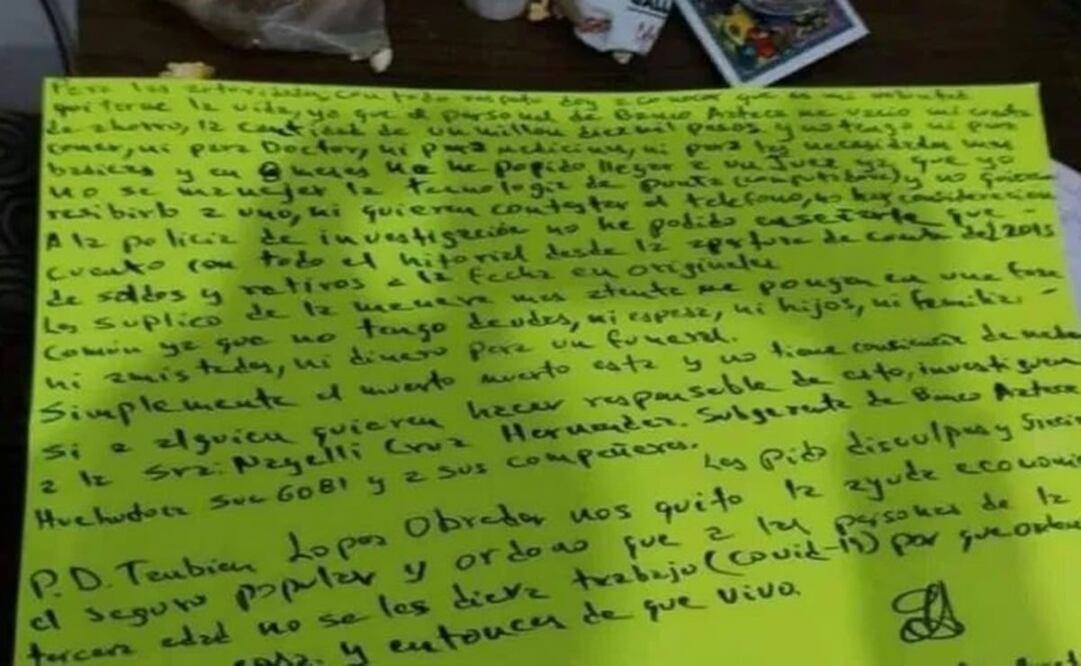 Para las autoridades con todo respeto doy a conocer que es mi voluntad
quitarme la vida, ya que el personal de Banco Azteca me vacio mi cuenta
de ahorro, la cantidad de un millon diezmil pesos y no tengo ni para
comer, ni para Doctor, ni para medicinas, ni para las necesidades mas
basicas y en 8 meses no he podido llegar a un Juez ya que yo
no se manejar la tecnologia de punta (computadora) y no quieren
resibirlo a uno, ni quieren contestar el telefono, no hay consideracion
A la policia de investigación no he podido enseñarle que -
cuento con todo el hitorial desde la apertura de cuenta del 2015
de saldos y retiros a la fecha en originales
Les suplico de la manera mas atenta me pongan en una fosa
común ya que no tengo deudos, ni esposa, ni hijos, ni familia -
ni amistades, ni dinero para un funeral.
Simplemente el muerto muerto esta y no tiene conciencia de nada
Si a alguien quieren hacer responsable de esto, investiguen
a la Sra: Nayelli Cruz Hernandez. Subgerente de Banco Azteca
Huehuetoca Suc 6081 y a sus compañeros.
Les Pido disculpas y
P.D. Tanbien Lopez Obrador nos quito la ayuda economi
el seguro popular y ordeno que a las personas de la
tercera edad no se les diera trabajo (covid-19) por que
casa. y entonces de que vivo.